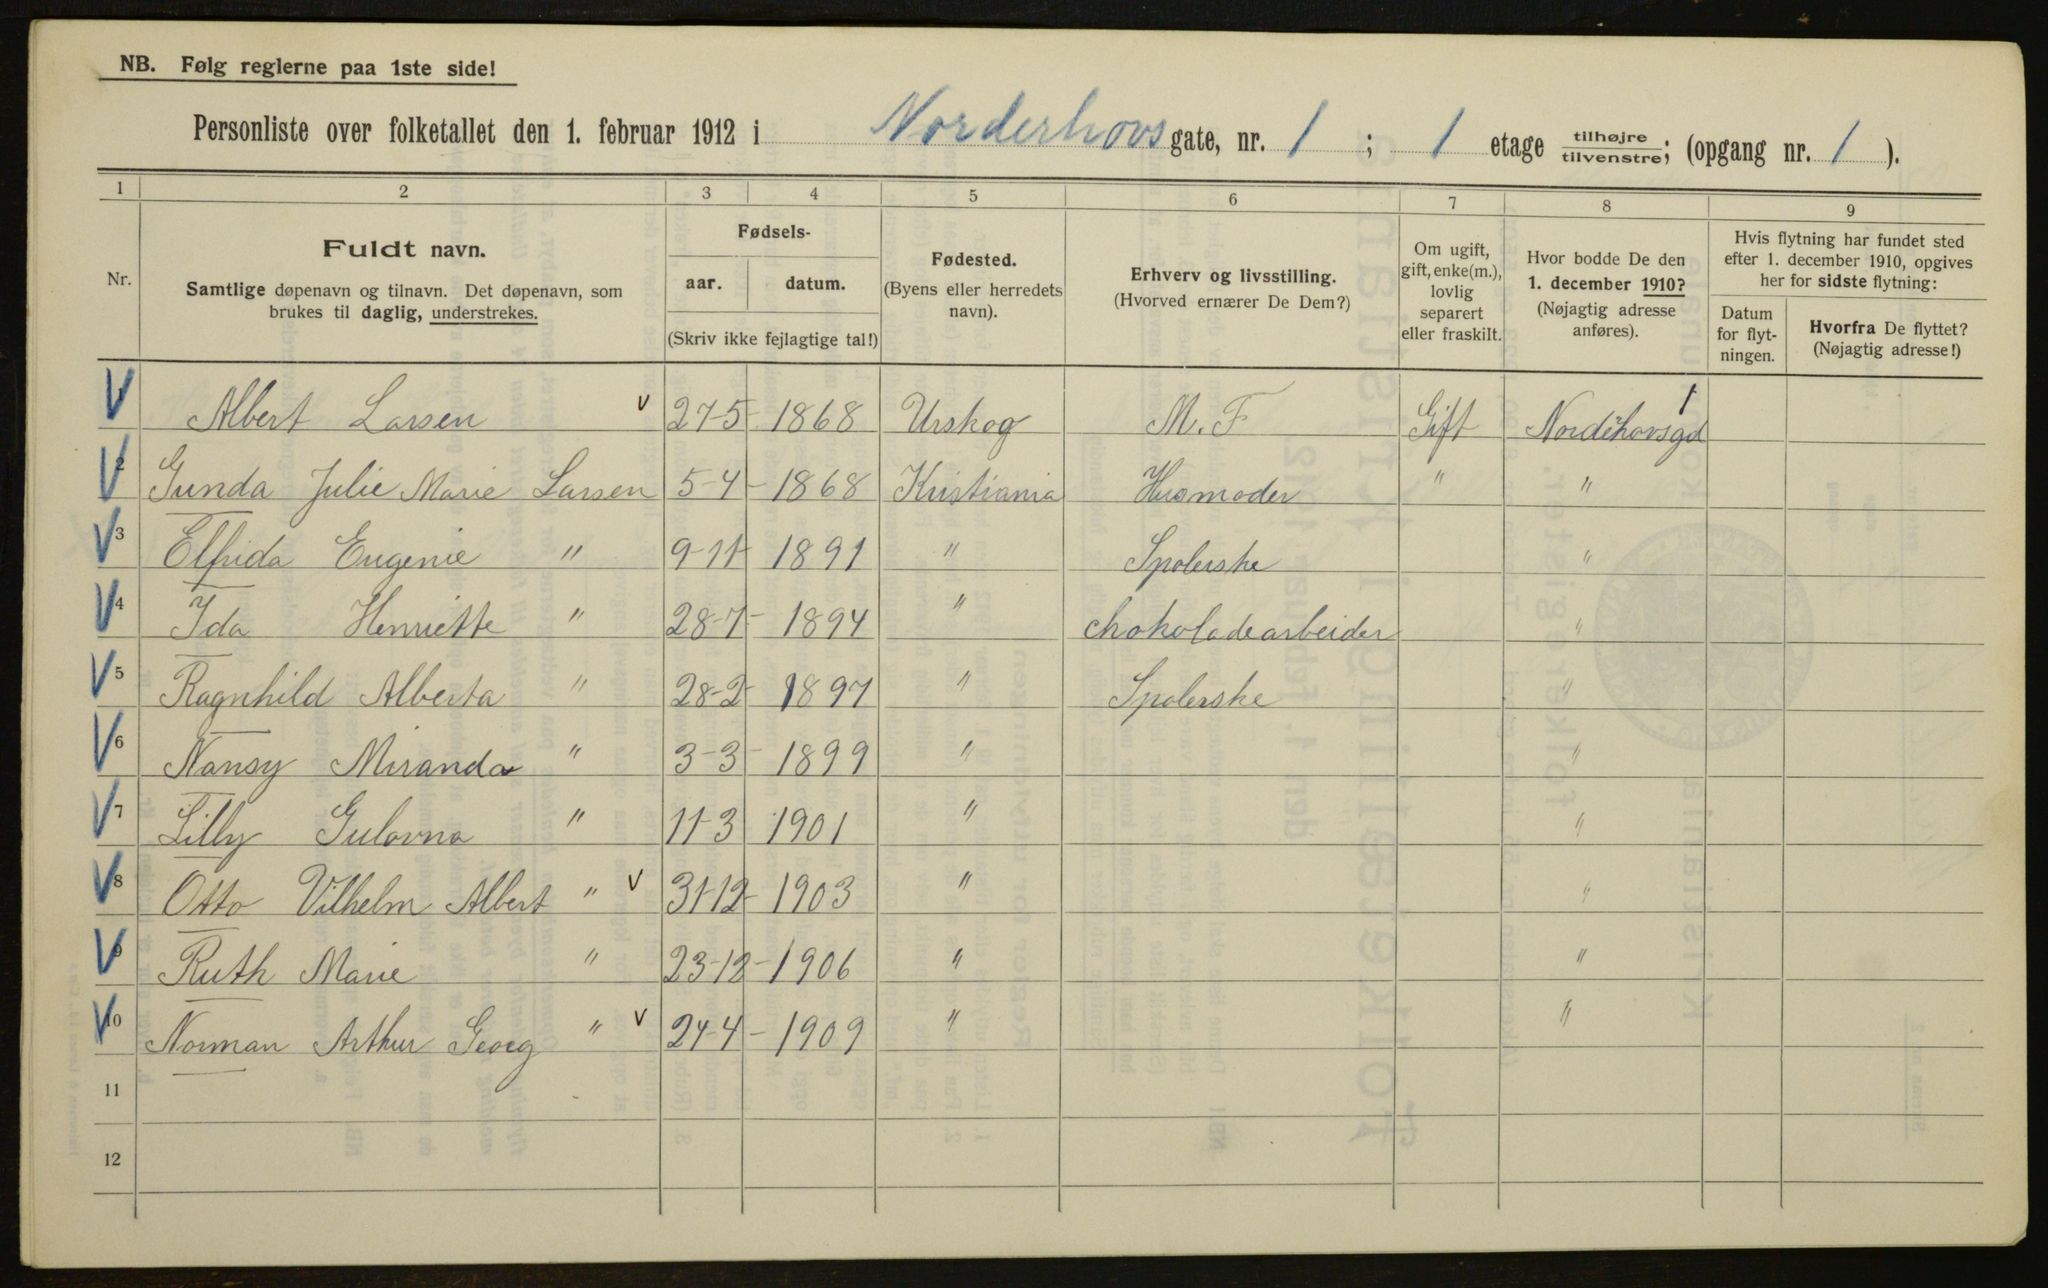 NB. Følg reglerne paa 1ste side!
Personliste over folketallet den 1. februar 1912 i Norderhovs gate, nr. 1 ; 1 etage tilhøjre/tilvenstre; (opgang nr. 1 ).
1 2 3 4 5 6 7 8 9
Nr.
Fuldt navn.
Samtlige døpenavn og tilnavn. Det døpenavn, som
brukes til daglig, understrekes.
Fødsels-
aar. datum.
(Skriv ikke fejlagtige tal!)
Fødested.
(Byens eller herredets
navn).
Erhverv og livsstilling.
(Hvorved ernærer De Dem?)
Om ugift,
gift, enke(m.),
lovlig
separert
eller fraskilt.
Hvor bodde De den
1. december 1910?
(Nøjagtig adresse
anføres).
Hvis flytning har fundet sted
efter 1. december 1910, opgives
her for sidste flytning:
Datum
for flyt-
ningen.
Hvorfra De flyttet?
(Nøjagtig adresse!)
1 Albert Larsen v 27-5- 1868 Urskog M. F Gift Nordehovsgd 1
2 Gunda Julie Marie Larsen 5-4- 1868 Kristiania Husmoder " "
3 Elfrida Eugenie " 9-11- 1891 " Spolerske "
4 Ida Henriette " 28-7- 1894 " chokoladearbeider "
5 Ragnhild Alberta " 28-2- 1897 " Spolerske "
6 Nansy Miranda " 3-3- 1899 " "
7 Lilly Gulovna " 11-3 1901 " "
8 Otto Vilhelm Albert " v 31-12- 1903 " "
9 Ruth Marie " 23-12- 1906 " "
10 Norman Arthur Georg " v 24-4- 1909 " "
11
12